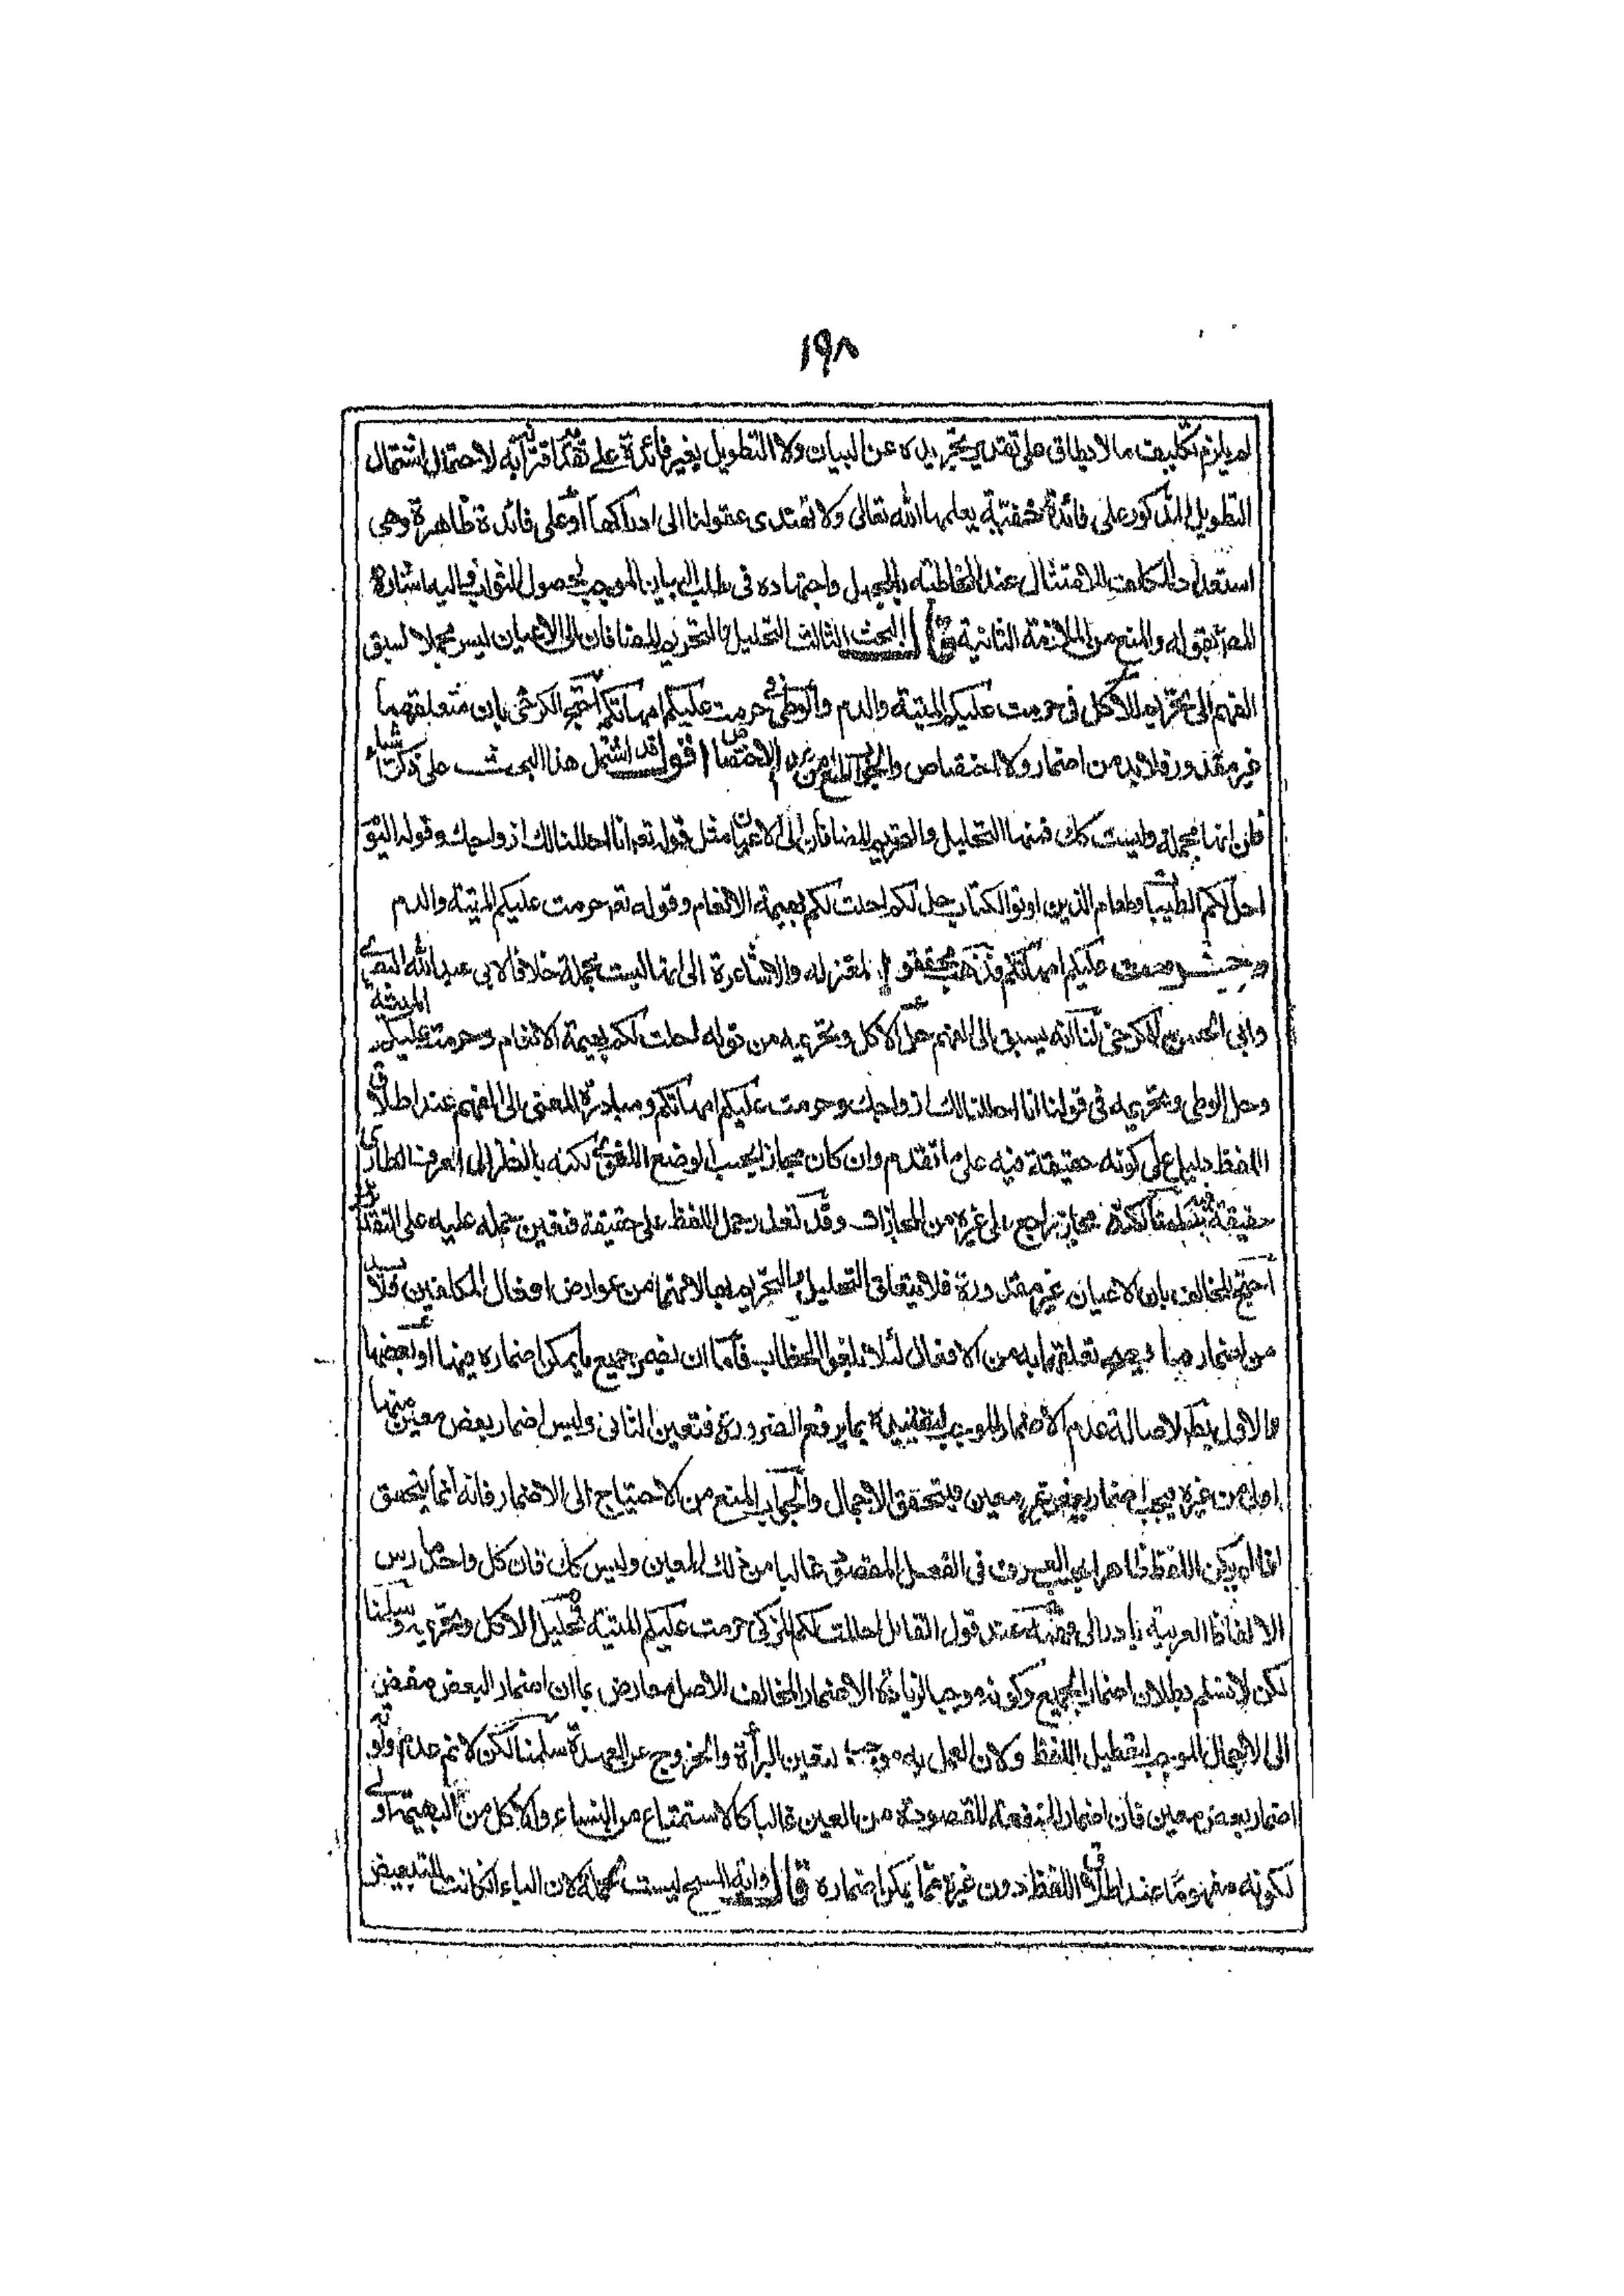 ١٩٨
لم يلزم تكليف ما لا يطاق على تقدير تجريده عن البيان ولا التطويل بغير فائدة على تقدير اقترانه به لاحتمال اشتمال
التطويل المذكور على فائدة خفية يعلمها الله تعالى ولا تهتدى عقولنا الى ادراكها او على فائدة ظاهرة وهى
استعداد المكلف للامتثال عند المخاطبة بالمجمل واجتهاده فى طلب البيان الموجب لحصول الثواب واليه اشارة
المص بقوله والمنع من الملازمة الثانية قال البحث الثالث التحليل والتحريم المضافان الى الاعيان ليس مجملا لسبق
الفهم الى تحريم الاكل فى حرمت عليكم الميتة والدم والوطى فى حرمت عليكم امهاتكم احتج الكرخى بان متعلقهما
غير مقدور فلا بد من اضمار ولا اختصاص والجواب المنع من عدم الاختصاص اقول قد اشتمل هذا البحث على ذكر اشياء
انها مجملة وليست كك فمنها التحليل والتحريم المضافان الى الاعيان مثل قوله تعم انا احللنا لك ازواجك وقوله اليوم
احل لكم الطيبات وطعام الذين اوتوا الكتاب حل لكم احلت لكم بهيمة الانعام وقوله تعم حرمت عليكم الميتة والدم
حرمت عليكم امهاتكم فذهب محققو المعتزلة والاشاعرة الى انها ليست مجملة خلافا لابى عبد الله البصرى
وابى الحسن الكرخى لنا انه يسبق الى الفهم حل الاكل وتحريمه من قوله احلت لكم بهيمة الانعام وحرمت عليكم الميتة
وحل الوطى وتحريمه فى قولنا انا احللنا لك ازواجك وحرمت عليكم امهاتكم ومبادرة المعنى الى الفهم عند اطلاق
اللفظ دليل على كونه حقيقة فيه على ما تقدم وان كان مجازا بحسب الوضع اللغوى لكنه بالنظر الى العرف الطارى
حقيقة مجاز راجع الى غيره من المجازات وقد تعذر حمل اللفظ على حقيقة فتعين حمله عليه على التقديرين
احتج المخالف بان الاعيان غير مقدورة فلا يتعلق التحليل والتحريم بها لانهما من عوارض افعال المكلفين فلا بد
من اضمار ما يصح تعلقهما به من الافعال لئلا يلغوا الخطاب فاما ان يضمر جميع ما يمكن اضماره منها او بعضها
والاول بط لاصالة عدم الاضمار الموجب لتقليله بما يرفع الضرورة فتعين الثانى وليس اضمار بعض معين منها
اولى من غيره فيجب اضمار بعض غير معين فيتحقق الاجمال والجواب المنع من الاحتياج الى الاضمار فانه انما يتحقق
اذا لم يكن اللفظ ظاهرا بحسب العرف فى الفعل المقصود غالبا من ذلك المعين وليس كك فان كل واحد مارس
الالفاظ العربية تبادر الى فهمه عند قول القائل احللت لكم المزكى حرمت عليكم الميتة تحليل الاكل وتحريمه سلمنا
لكن لا نسلم بطلان اضمار الجميع وكونه موجبا لزيادة الاضمار المخالف للاصل معارض بما ان اضمار البعض مفض
الى الاجمال الموجب لتعطيل اللفظ ولان العمل به موجب لتعين البرأة والخروج عن العهدة سلمنا لكن لا نم عدم اولوية
اضمار بعض معين فان اضمار المنفعة المقصودة من العين غالبا كالاستمتاع من النساء والاكل من البهيمة اولى
لكونه مفهوما عند اطلاق اللفظ دون غيره مما يمكن اضماره قال واية المسح ليست مجملة لان الباء ان كانت للتبعيض